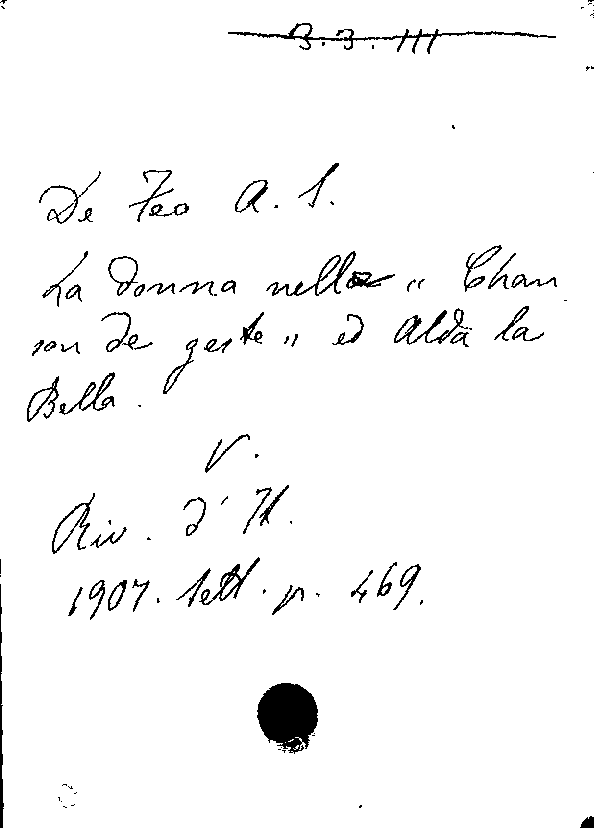 B.3.III
De Feo A. S.
La donna nella „ Chan
son de geste „ ed Alda la
Bella.
V.
Riv. d'It.
1907. Sett. p. 469.